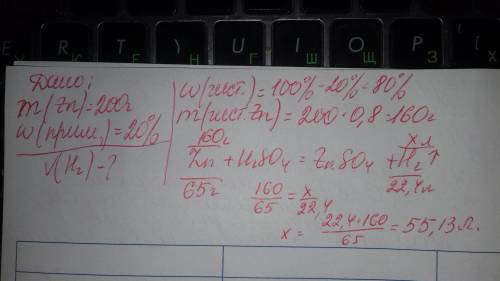 E R T Y U I O P
К Е Н Г Ш Щ З
Дано;
m(Zn)=200г
w(прим.)=20%
V(H₂)-?
w(чист.)=100%-20%=80%
m(чист.Zn)=200·0,8=160г
160г xл
Zn + H₂SO₄ = ZnSO₄ + H₂↑
65г 22,4л
160/65 = x/22,4
x = 22,4·160/65 = 55,13л.